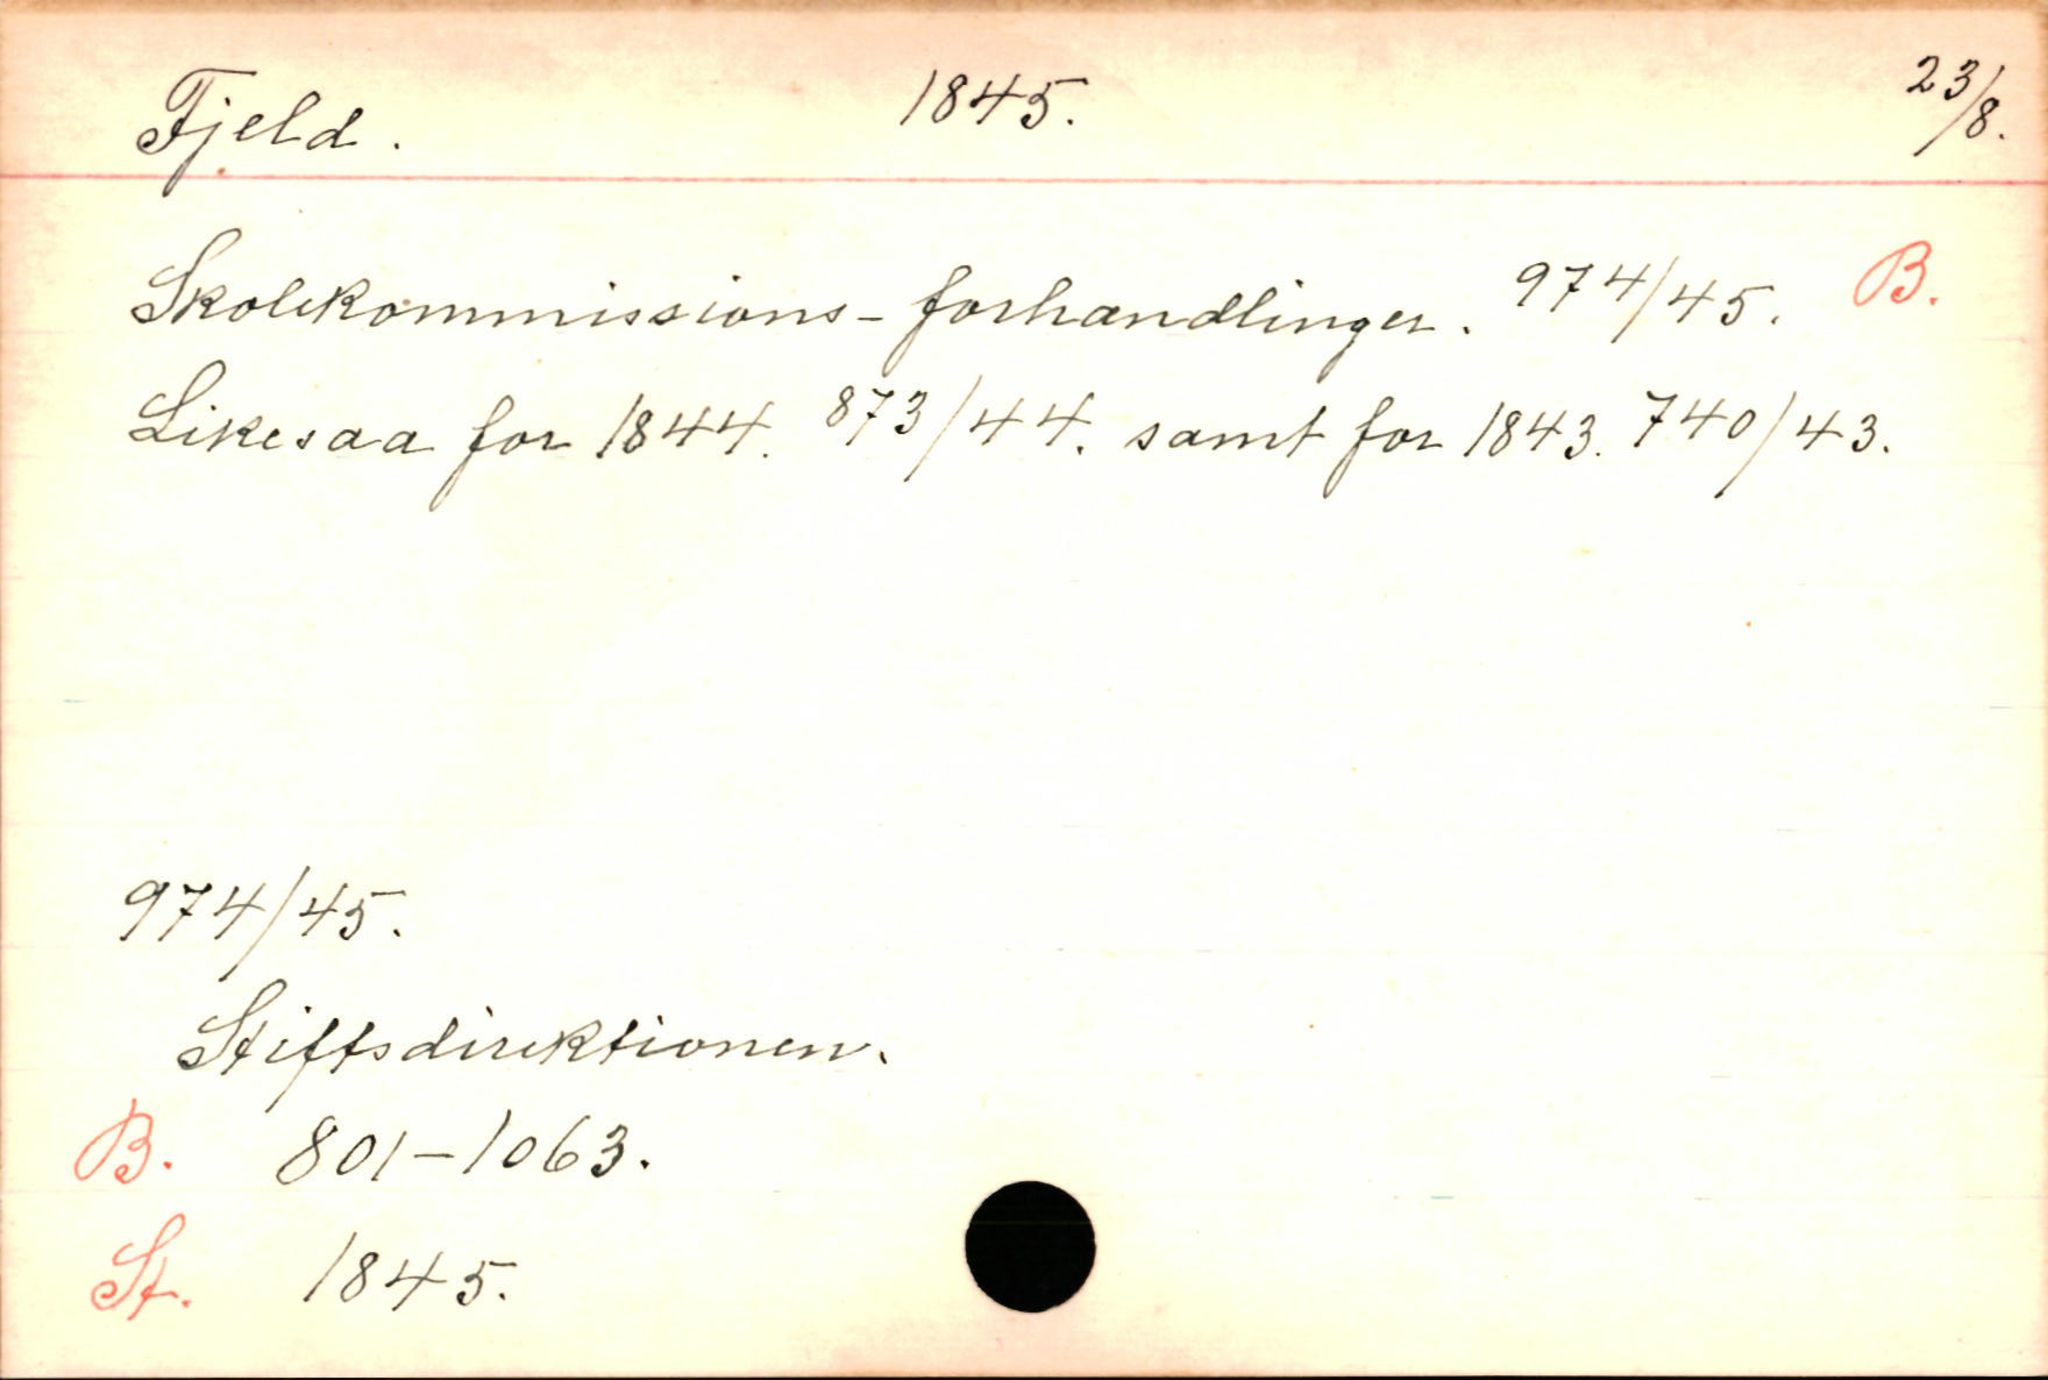 Fjeld. 1845. 23/8.
Skolekommissions-forhandlinger. 974/45. B.
Likesaa for 1844. 873/44. samt for 1843. 740/43.
974/45.
Stiftsdirektionen.
B. 801-1063.
St. 1845.